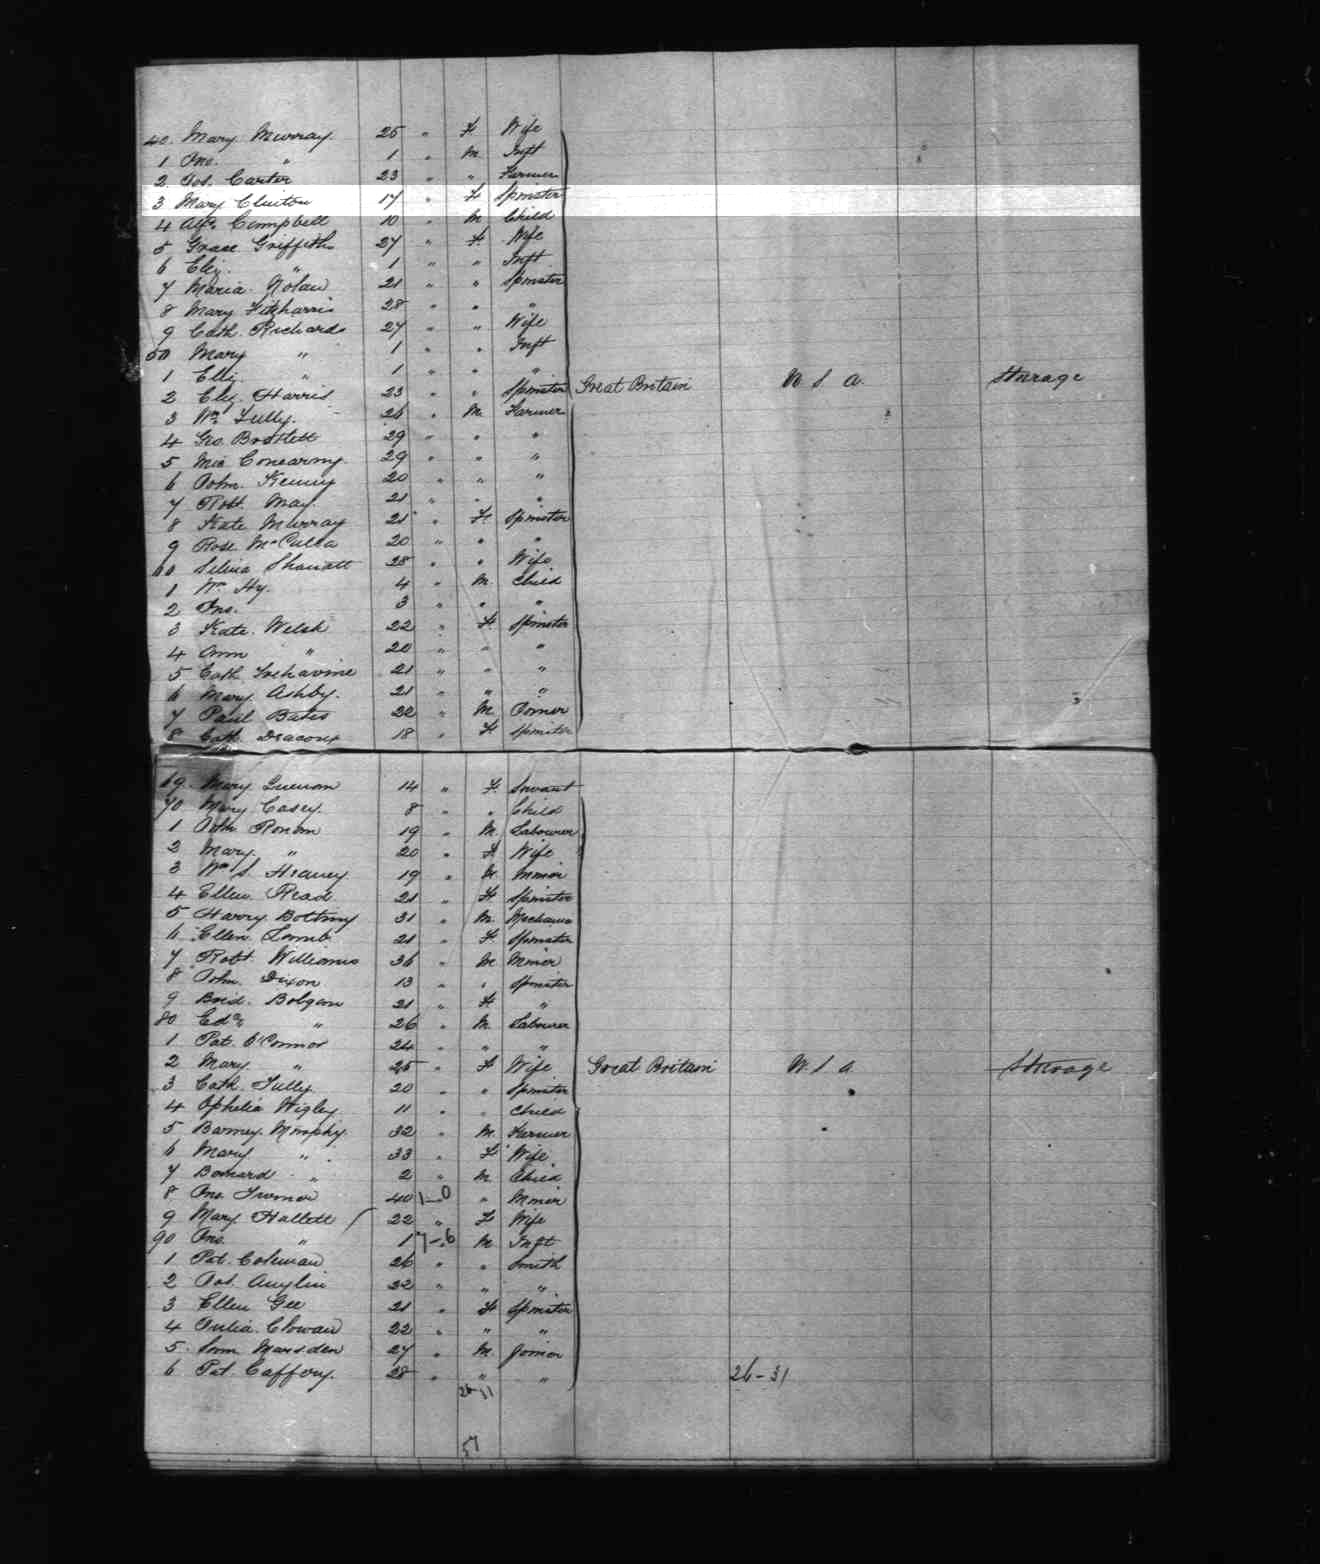 40. Mary Murray. 25 " F Wife
1 Jno. " 1 " M Inft
2 Jos. Carter 23 " " Farmer
3 Mary Clinton 17 " F Spinster
4 Alfd. Campbell 10 " M Child
5 Grace Griffiths 27 " F Wife
6 Eliz. " 1 " " Inft
7 Maria Nolan 21 " " Spinster
8 Mary Fitzharris 28 " " "
9 Cath. Richards 27 " " Wife
50 Mary " 1 " " Inft
1 Eliz. " 1 " " "
2 Eliz. Harris 23 " " Spinster Great Britain U. S. A. Steerage
3 Wm. Tully. 26 " M Farmer
4 Geo. Bartlett 29 " " "
5 29 " " "
6 John. Kenny 20 " " "
7 Robt. May. 21 " " "
8 Kate Murray 21 " F Spinster
9 Rose McCulla 20 " " "
60 Silvia 28 " " Wife
1 Wm. Hy. 4 " M Child
2 Jno. 3 " " "
3 Kate. Welsh 22 " F Spinster
4 Ann " 20 " " "
5 Cath. 21 " " "
6 Mary Ashby. 21 " " "
7 Paul Bates 22 " M Joiner
8 Cath. 18 " F Spinster
69. Mary 14 " F. Servant
70 Mary Casey. 8 " " Child
1 John Ronan 19 " M. Labourer
2 Mary " 20 " F Wife
3 Wm. S. Heaney 19 " M. Miner
4 Ellen Read 21 " F Spinster
5 Harry 31 " M. Mechanic
6 Ellen Lamb. 21 " F Spinster
7 Robt. Williams 36 " M Miner
8 John. Dixon 13 " " Spinster
9 Brid. 21 " F "
80 Edwd. " 26 " M. Labourer
1 Pat. O'Connor 24 " " "
2 Mary " 25 " F Wife Great Britain U. S. A. Steerage
3 Cath. Tully. 20 " " Spinster
4 Ophelia Wigley 11 " " Child
5 Barney. Murphy. 32 " M. Farmer
6 Mary " 33 " F Wife
7 Bernard " 2 " M. Child
8 Jno. 40 1-0 " Miner
9 Mary Hallett 22 " F Wife
90 Jno. " 1 7-6 M Inft
1 Pat. Coleman 26 " " Smith
2 Jos. Anglin 22 " " "
3 Ellen Gee 21 " F Spinster
4 Julia. Clowan 22 " " "
5. Marsden 27 " M. Joiner
6 Pat. Caffery. 28 " " " 26-31
26-31
57